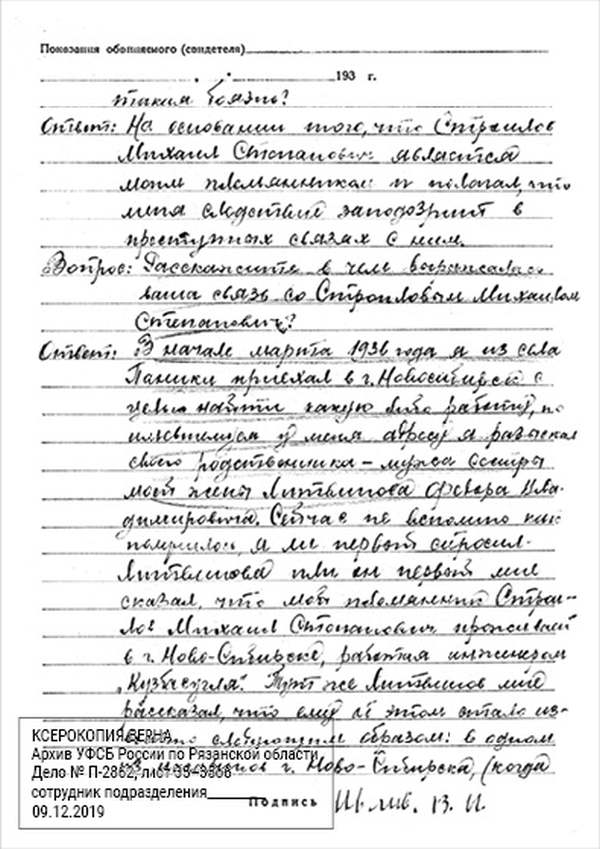 Показания обвиняемого (свидетеля)
193 г.
таким боязнь?
Ответ: На основании того, что Строилов
Михаил Степанович является
моим племянником и полагал, что
меня следствие заподозрит в
преступных связах с ним.
Вопрос: Расскажите в чем выражалась
ваша связь со Строиловым Михаилом
Степанович?
Ответ: В начале марта 1936 года я из села
Паники приехал в г. Новосибирск с
целью найти какую либо работу, по
имевшимуся у меня адресу я разыскал
своего родственника – мужа сестры
моей жены Литвинова Федора Вла-
димировича. Сейчас не вспомню как
получилось, я ли первый спросил
Литвинова или он первый мне
сказал, что мой племянник Строи-
лов Михаил Степанович проживает
в г. Ново-Сибирске, работая инженером
„Кузбасугля". Тут же Литвинов мне
рассказал, что ему об этом стало из-
вестно следующим образом: в одном
из г. Ново-Сибирска, (когда
КСЕРОКОПИЯ ВЕРНА
Архив УФСБ России по Рязанской области
Дело № П-2862, лист 35-35об
сотрудник подразделения
09.12.2019
Подпись В. И.